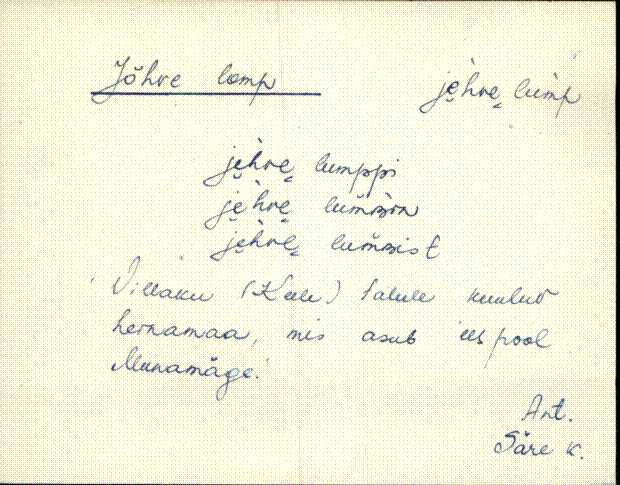 Jõhve lomp        jè̬hve̬ lùmp
jè̬hve̬ lumppi
jè̬hve̬ lum̆mìn
jè̬hve̬ lum̆mist
(Keele) talule kuuluv
heinamaa, mis asub eespool
Munamäge.
Ant.
Säre k.